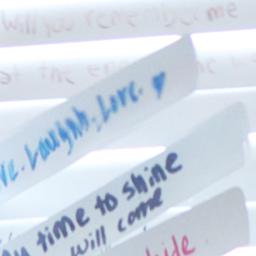 will you remember me
at the en
ve. Laughh. Love. ♥
my time to shine
will come